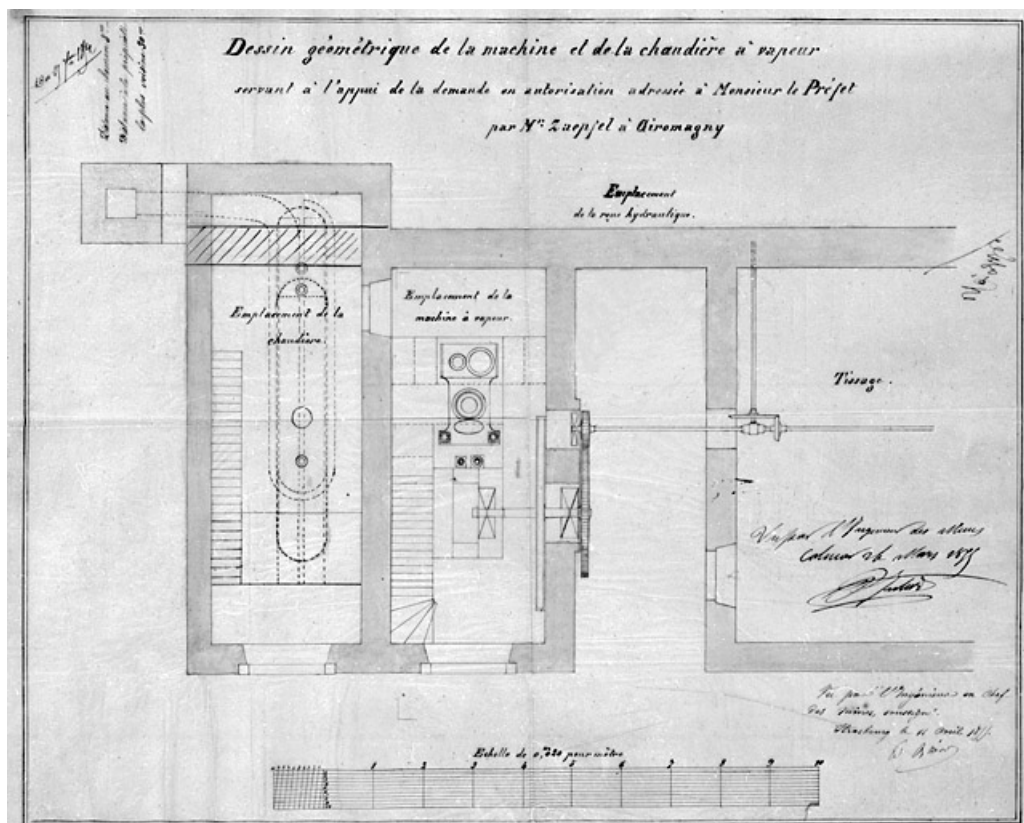 Dessin géométrique de la machine et de la chaudière à vapeur
servant à l'appui de la demande en autorisation adressée à Monsieur le Préfet
par Mr. Zaepfel à Giromagny
Emplacement
de la roue hydraulique.
Emplacement de la
chaudière.
Emplacement de la
machine à vapeur.
Tissage.
Vu par l'Ingénieur des Mines
Colmar Mars
Vu par l'Ingénieur en Chef
des Mines, soussigné.
Strasbourg le 11 avril
Echelle de 0,m020 pour mètre
1 2 3 4 5 6 7 8 9 10